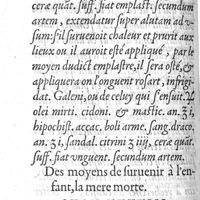 cera quat. ſuff. fiat emplaſt. ſecundum
artem, extendatur ſuper alutam ad v-
ſum: s'il ſuruenoit chaleur et prurit aux
lieux ou il auroit eſté appliqué, par le
moyen dudict emplaſtre, il ſera oſté, &
appliquera on l'onguent roſart, infrigi-
dat. Galeni, ou de celuy qui s'enſuit. ℞
olei mirti. cidoni. & maſtic. an. ℥ i,
hipochiſt. accac. boli arme. ſang. draco.
an. ʒ i, ſandal. citrini ʒ iiij, cera quat.
ſuff. fiat vnguent. ſecundum artem.
Des moyens de ſuruenir à l'en-
fant, la mere morte.